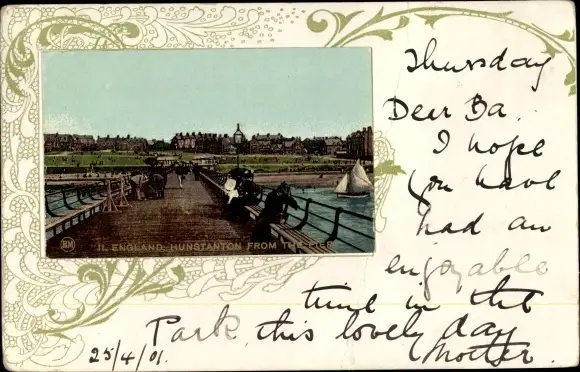 Thursday
Dear Ba.
I hope
you have
had an
enjoyable
time in the
Park, this lovely day
Mother.
25/4/01.
11. ENGLAND: HUNSTANTON FROM THE PIER